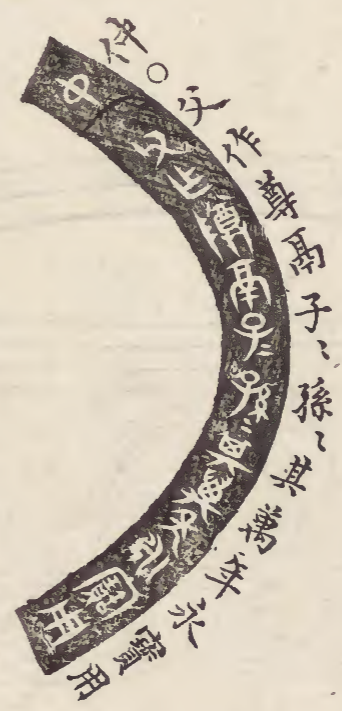 仲〇父作尊鬲子〻孫〻其萬年永寶用